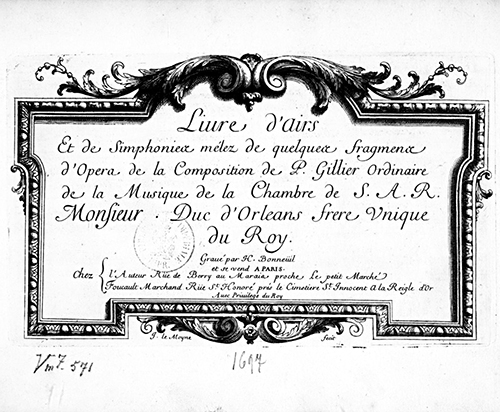 Liure d'airs
Et de Simphonies mélez de quelques fragmens
d'Opera de la Composition de P. Gillier Ordinaire
de la Musique de la Chambre de S. A. R.
Monsieur . Duc d'Orleans frere Vnique
du Roy.
Graué par H. Bonneüil
et se vend A PARIS.
Chez { l'Auteur Rüe de Berry au Marais proche Le petit Marché
Foucault Marchand Rüe St. Honoré prés le Cimetiere St. Innocent A la Reigle d'Or
Auec Priuilege du Roy
J. le Moyne fecit
Vm7. 571
1697